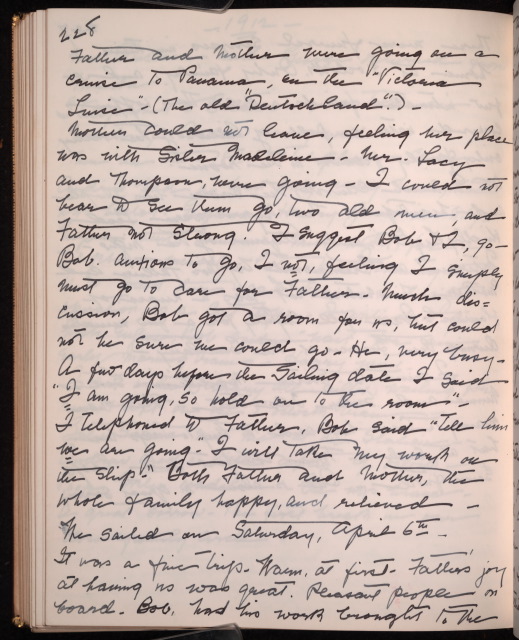 228
Father and Mother were going on a
cruise to Panama, on the "Victoria
Luise" - (The old "Deutschland".) -
Mother could not leave, feeling her place
was with Sister Madeleine - Mr. Lacy
and Thompson, were going - I could not
bear to see them go, two old men, and
Father not strong. I suggest Bob & I, go -
Bob. anxious to go, I not, feeling I simply
must go to care for Father. Much dis=
cussion, Bob got a room for us, but could
not be sure we could go - He, very busy -
A few days before the sailing date I said
"I am going, so hold on to the room" -
I telephoned to Father, Bob said "Tell him
we are going" - I will take my work on
the ship." Both Father and Mother, the
whole family happy, and relieved -
We sailed on Saturday, April 6th -
It was a fine trip. Warm, at first - Father's joy
at having us was great. Pleasant people on
board - Bob. had his work brought to the